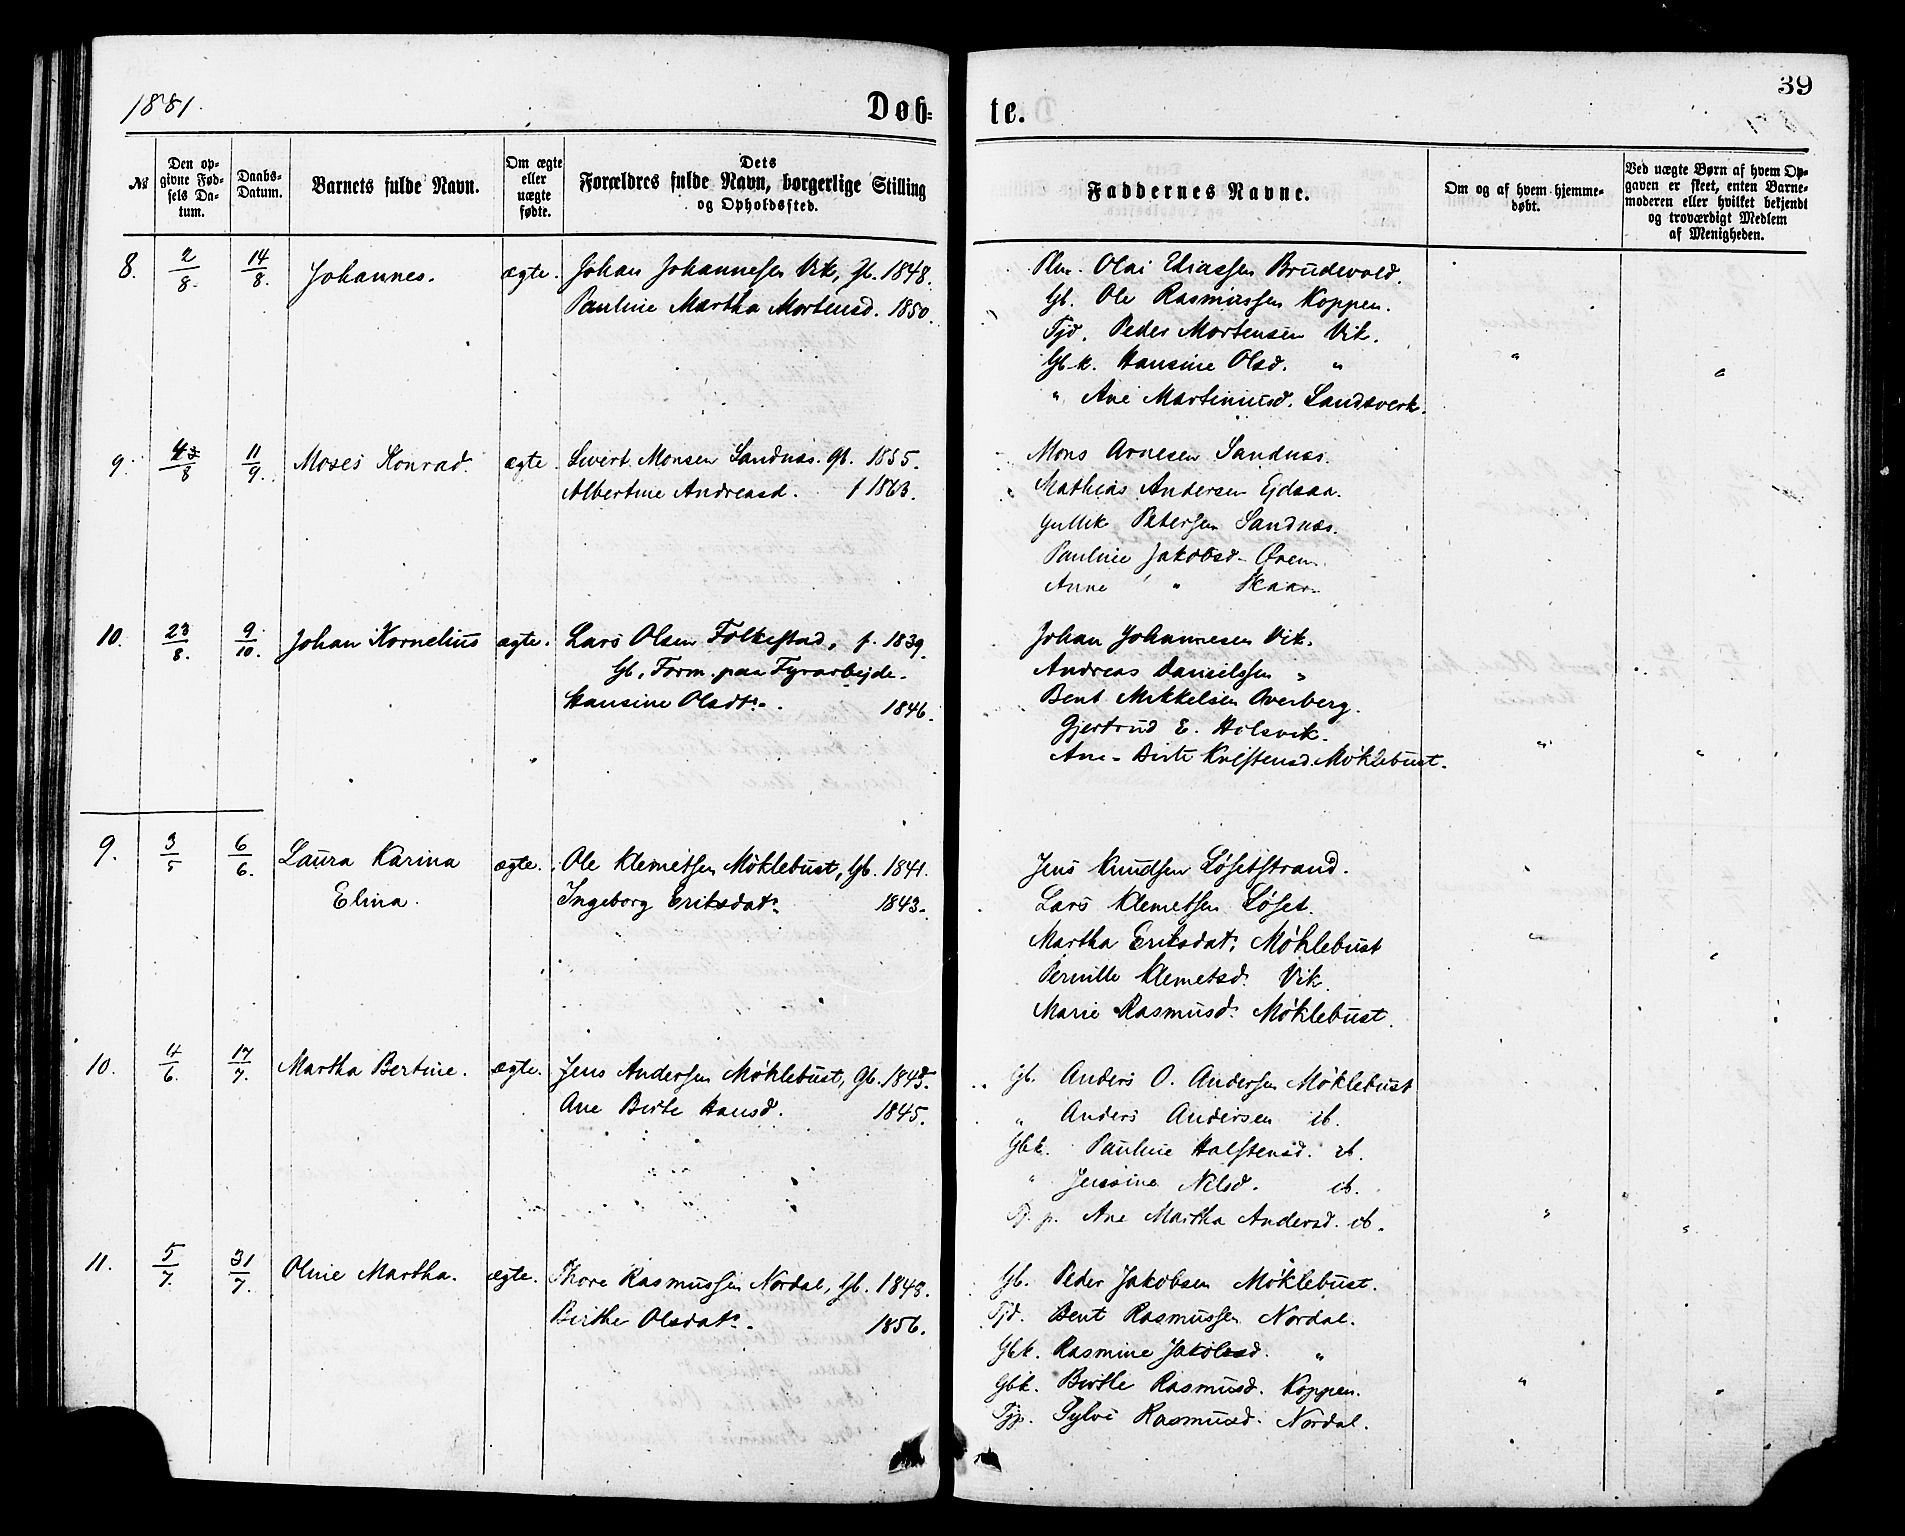 39
1881.
Døb-
te.
№
Den op-
givne Fød-
sels Da-
tum.
Daabs-
Datum.
Barnets fulde Navn.
Om ægte
eller
uægte
fødte.
Dets
Forældres fulde Navn, borgerlige Stilling
og Opholdssted.
Faddernes Navne.
Om og af hvem hjemme-
døbt.
Ved uægte Børn af hvem Op-
gaven er skeet, enten Barne-
moderen eller hvilket bekjendt
og troværdigt Medlem
af Menigheden.
8. 2/8. 14/8. Johannes. ægte. Johan Johannessen Vik, Gb. 1848.
Pauline Martha Mortensd. 1850.
Olai Eliassen Brudevold.
Gb. Ole Rasmussen Koppen.
Tjd. Peder Mortensen Vik.
Gb.k. Hansine Olsd. "
" Ane Martinusd. Landsverk.
9. /8 11/9. Moses Konrad. ægte. Sivert Monsen Sandnæs. Gb. 1855.
Albertine Andreasd. f 1863.
Mons Arnesen Sandnæs.
Mathias Andersen Ejdsaa.
Gullik Petersen Sandnæs.
Pauline Jakobsd. Øren.
Anne " Skaar.
10. 23/8. 9/10. Johan Kornelius ægte. Lars Olsen Folkestad, f. 1839.
Gb. Form. paa Fyrarbejde.
Hansine Olsdtr. 1846.
Johan Johannesen Vik.
Andreas Danielssen "
Bent Mikkelsen Overberg.
Gjertrud E. Holsvik.
Ane-Birte Møklebust.
9. 3/5 6/6. Laura Karina
Elina.
ægte. Ole Klemetsen Møklebust, Gb. 1841.
Ingeborg Eriksdatr. 1843.
Jens Knudsen Løsetstrand.
Lars Klemetsen Løset.
Martha Eriksdatr. Møklebust
Pernille Klemetsd. Vik.
Marie Rasmusd. Møklebust.
10. 4/6. 17/7. Martha Bertine. ægte. Jens Andersen Møklebust, Gb. 1845.
Ane Birte Hansd. 1845.
Gb. Anders O. Andersen Møklebust
" Anders Andersen ib.
Gbk. Pauline Halstensd. ib.
" Jensine Nilsd. ib.
p. Ane Martha Andersd. ib.
11. 5/7. 31/7. Oline Martha. ægte. Thore Rasmussen Nordal, Gb. 1848.
Birthe Olsdatr. 1856.
Gb. Peder Jakobsen Møklebust.
Tjd. Bent Rasmussen Nordal.
Gbk. Rasmine Jakobsd. "
Gbk. Birthe Rasmusd. Koppen.
Tjp. Sylvi Rasmusd. Nordal.